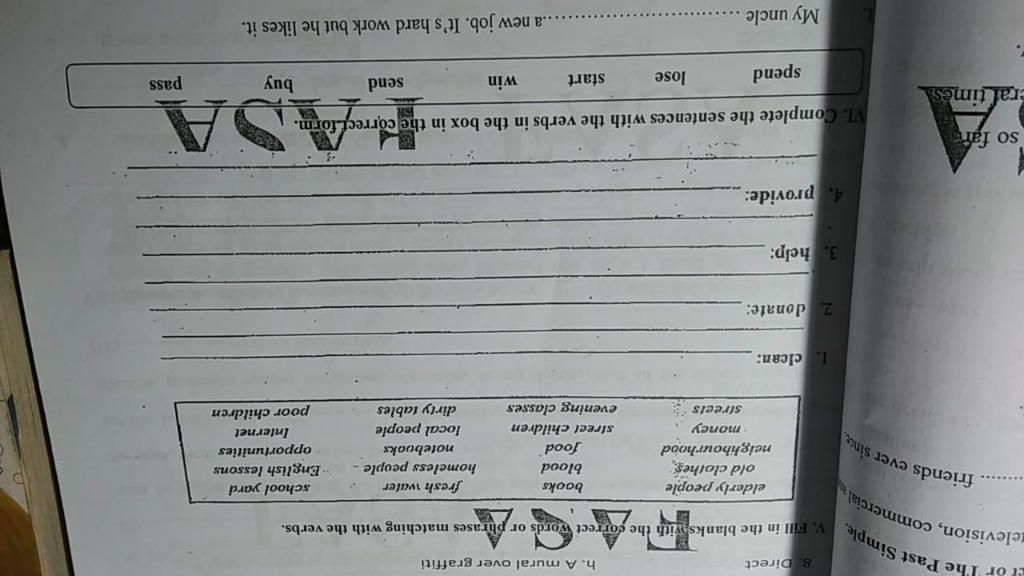 8. Direct h. A mural over graffiti
V. Fill in the blanks with the correct words or phrases matching with the verbs.
FASA
elderly people books fresh water school yard
old clothes blood homeless people English lessons
neighbourhood food notebooks opportunities
money street children local people Internet
streets evening classes dirty tables poor children
1. clean:
2. donate:
3. help:
4. provide:
VI. Complete the sentences with the verbs in the box in the correct form.
FASA
spend lose start win send buy pass
My uncle ........................ a new job. It's hard work but he likes it.
or The Past Simple
television, commercial
........ friends ever since
so far
eral times